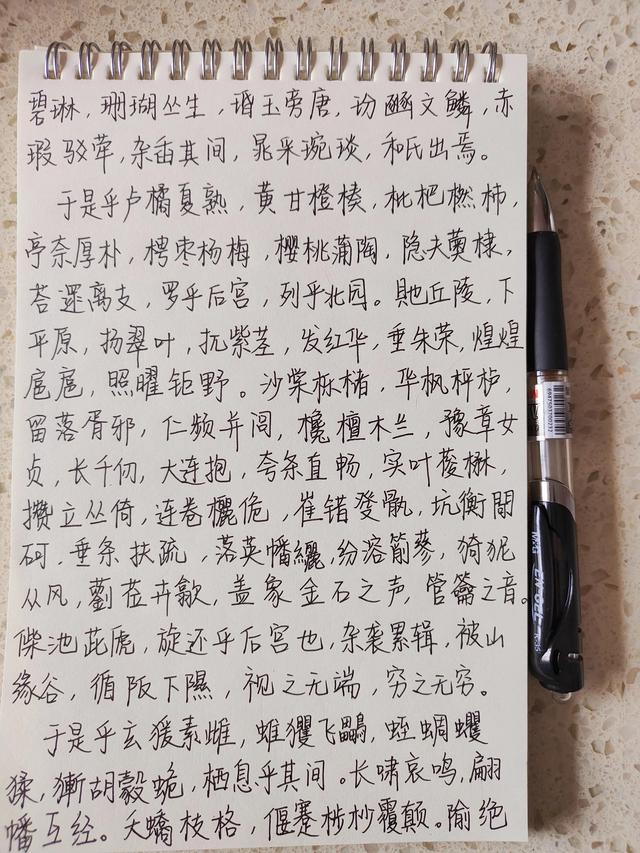 碧琳，珊瑚丛生，瑉玉旁唐，玢豳文鳞，赤
瑕驳荦，杂臿其间，晁采琬琰，和氏出焉。
于是乎卢橘夏熟，黄甘橙楱，枇杷橪柿，
亭奈厚朴，梬枣杨梅，樱桃蒲陶，隐夫薁棣，
荅遝离支，罗乎后宫，列乎北园。貤丘陵，下
平原，扬翠叶，扤紫茎，发红华，垂朱荣，煌煌
扈扈，照曜钜野。沙棠栎槠，华枫枰栌，
留落胥邪，仁频并闾，欃檀木兰，豫章女
贞，长千仞，大连抱，夸条直畅，实叶葰楙，
攒立丛倚，连卷欐佹，崔错癹骫，坑衡閜
砢，垂条扶疏，落英幡纚，纷溶萷蔘，猗狔
从风，藰莅卉歙，盖象金石之声，管籥之音。
偨池茈虒，旋还乎后宫也，杂袭累辑，被山
缘谷，循阪下隰，视之无端，穷之无穷。
于是乎玄猨素雌，蜼玃飞鸓，蛭蜩蠼
猱，獑胡豰蛫，栖息乎其间。长啸哀鸣，翩
幡互经。夭蟜枝格，偃蹇杪颠。隃绝
M&G
K-35